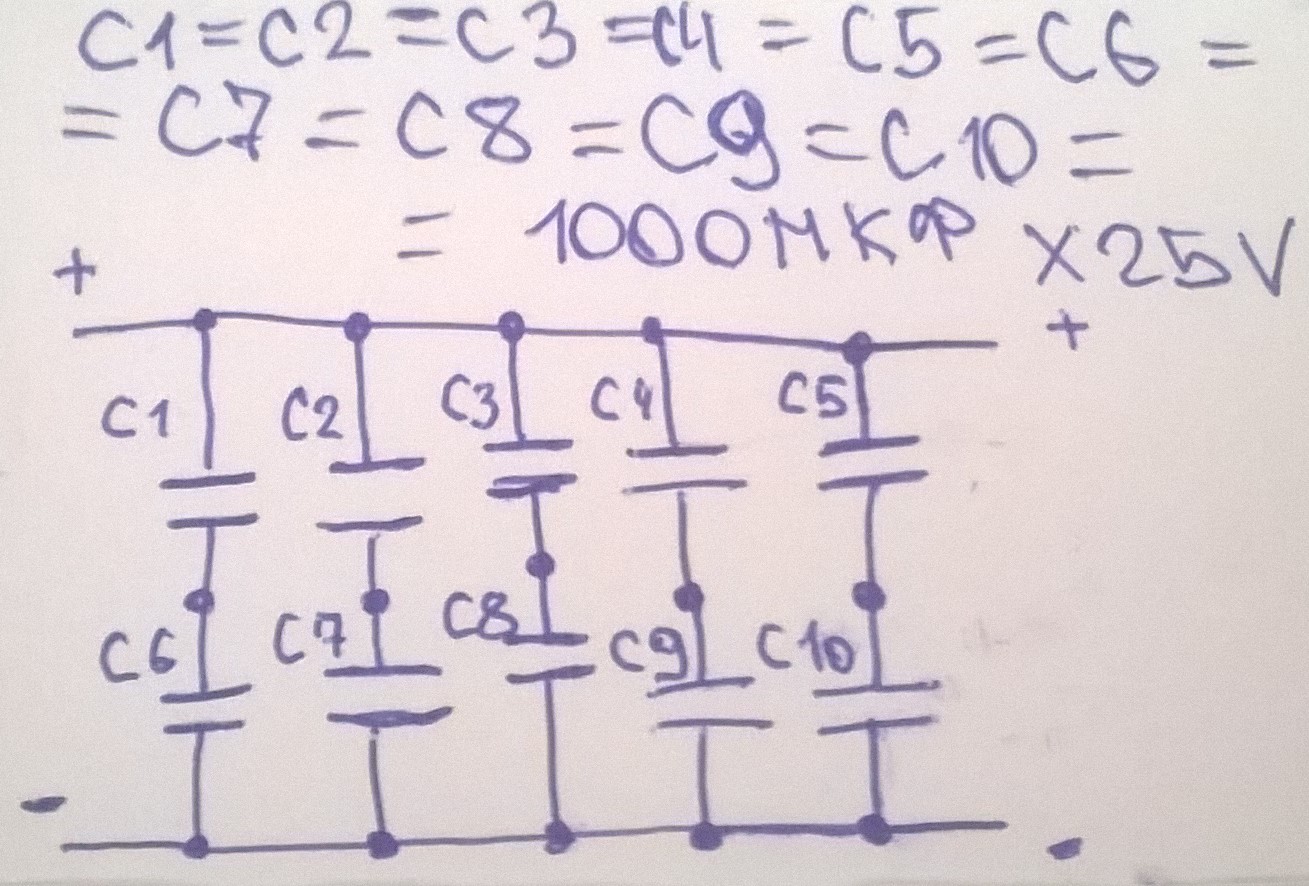 C1=C2=C3=C4=C5=C6=
=C7=C8=C9=C10=
= 1000МКФ X25V
+
+
C1 C2 C3 C4 C5
C6 C7 C8 C9 C10
-
-